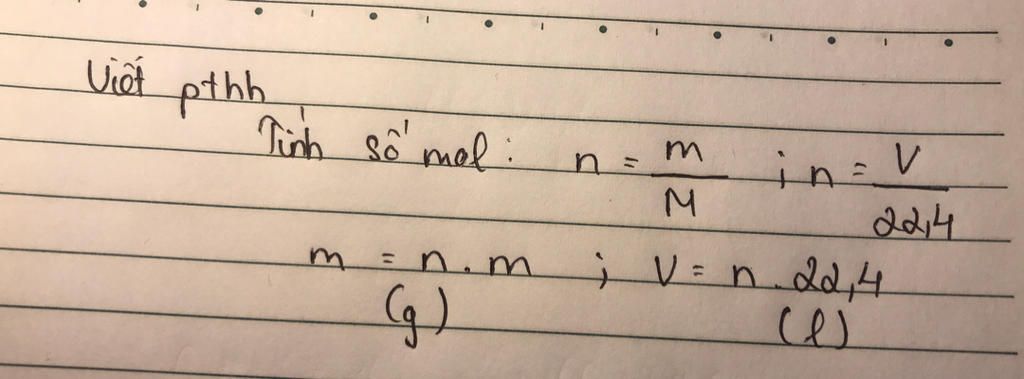 Viết pthh
Tính số mol : n = m/M ; n = V/22,4
m = n . m ; V = n . 22,4
(g) (l)